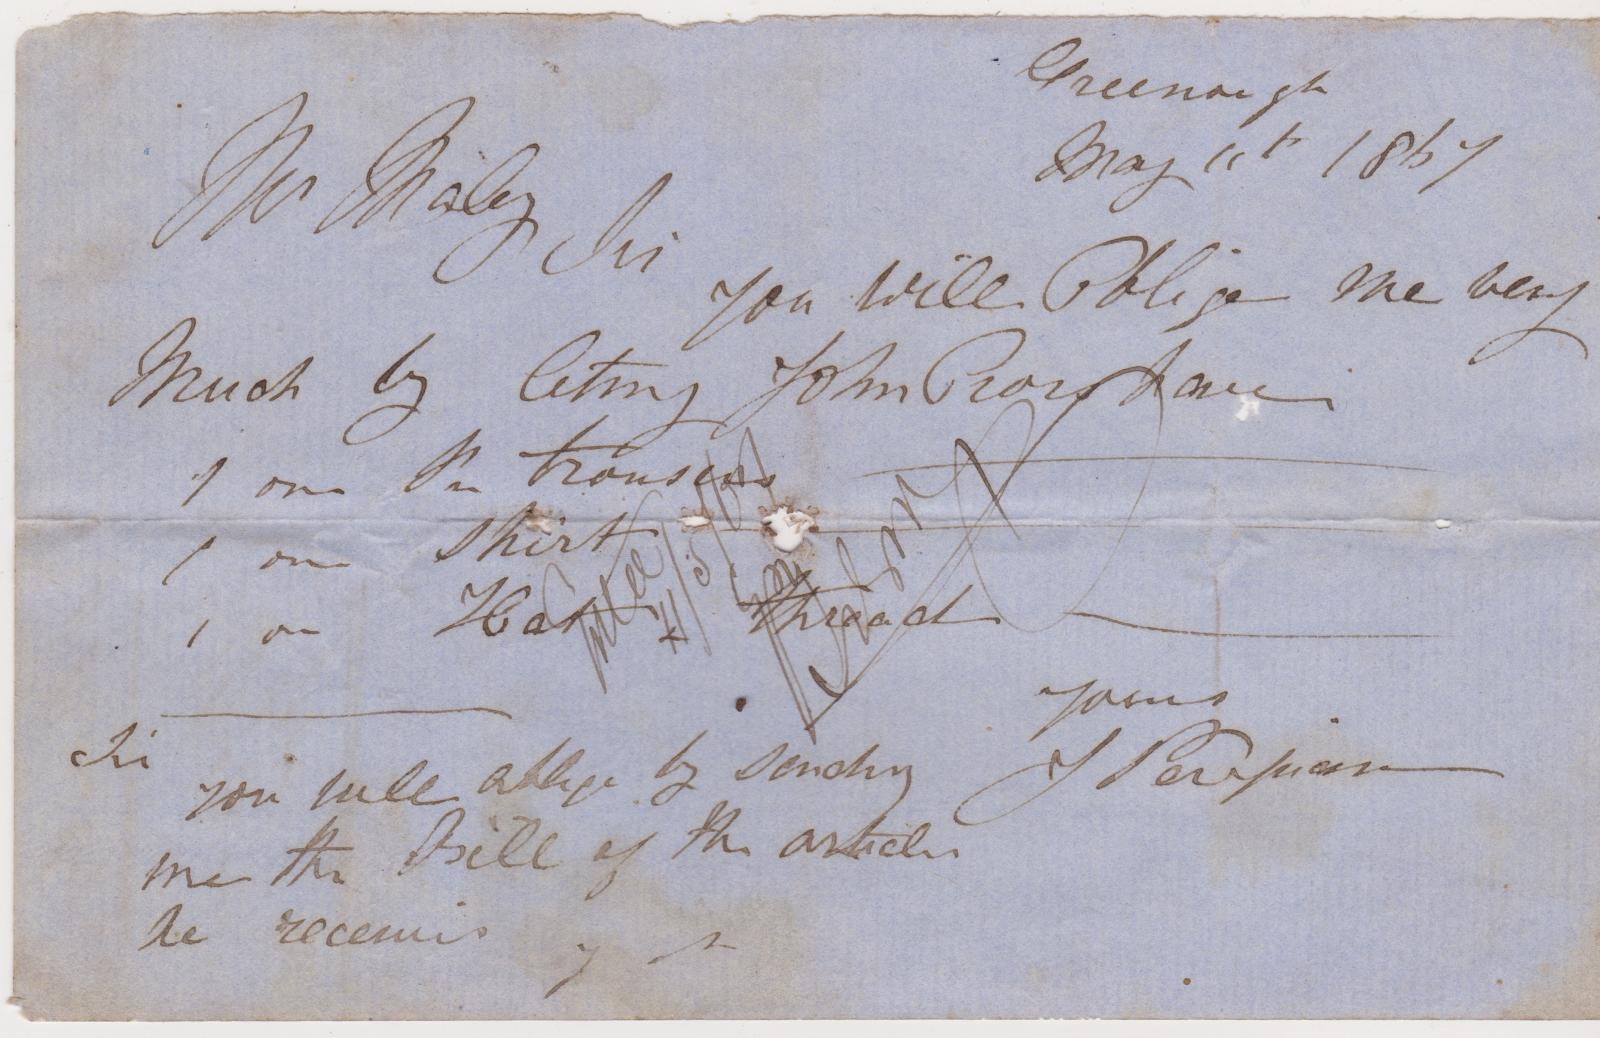 Greenough
May 11th 1867
Mr Maley
Sir
you will Oblige me very
Much by leting John have
1 one Pr trousers
1 one shirt
1 on Hat thread
yours
J
Sir
you will oblige by sending
me the Bill of the articles
he receives